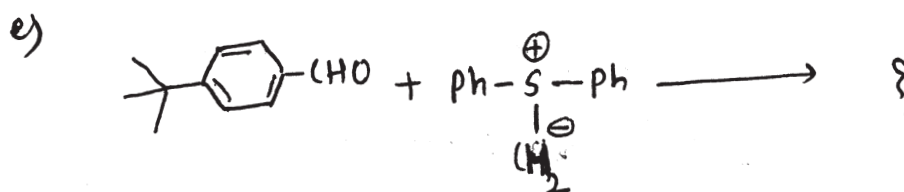 e)
CHO + Ph-S-Ph ⟶ ?
⊕
⊖
CH₂